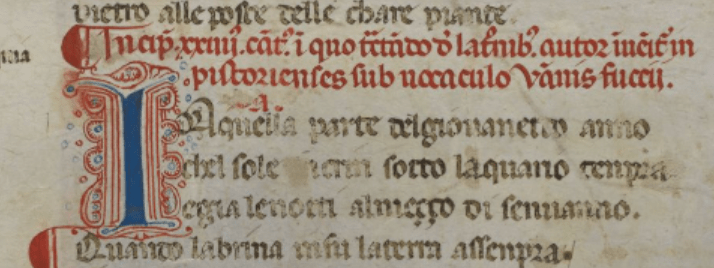 dietro alle poste delle chare piante.
Incip. xxiiij. cāt. ī quo t̄ctādo d̄ lat̄nib. autor īueīt in
pistorienses sub uocaculo vānis fuccij.
I Nquella parte delgiouanetto anno
chel sole sotto laquario tempra
egia lenotti almeççο di senuanno.
Quando labrina insu laterra assenpra.